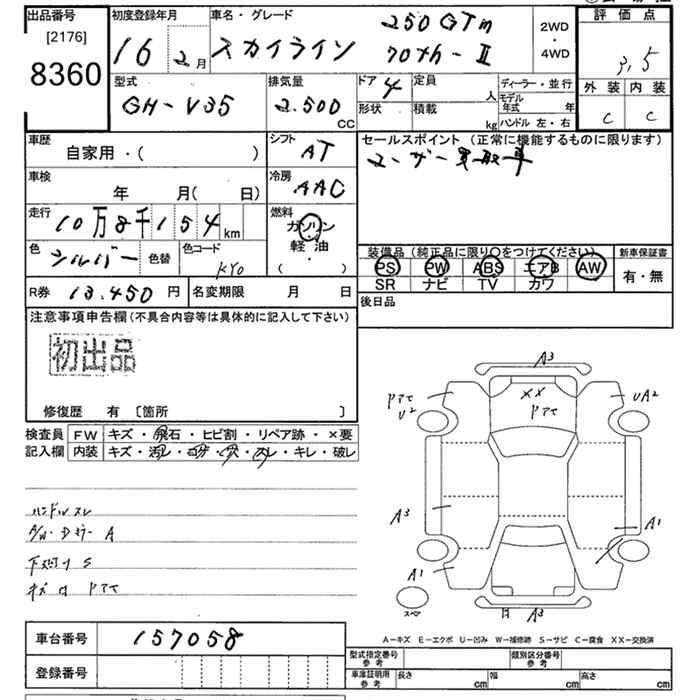 出品番号 初度登録年月 車名・グレード 評価点
[2176]
8360
16 2月 スカイライン 250GTm 70th-Ⅱ 2WD・4WD 3.5
型式 排気量 ドア 4 定員 人 ディーラー・並行 外装 内装
GH-V35 2.500CC 形状 積載 kg モデル年式 年 C C
ハンドル 左・右
車歴 シフト セールスポイント (正常に機能するものに限ります)
自家用・( ) AT ユーザー買取車
車検 冷房
年 月( 日) AAC
走行 燃料
10万8千154km ガソリン
色 シルバー 色替 色コード KY0 軽油 ( )
装備品(純正品に限り○をつけてください) 新車保証書
PS PW ABS エアB AW 有・無
SR ナビ TV カワ
R券 13.450円 名変期限 月 日 後日品
注意事項申告欄(不具合内容等は具体的に記入して下さい)
初出品
修復歴 有 〔箇所 〕
検査員 FW キズ・飛石・ヒビ割・リペア跡・×要
記入欄 内装 キズ・汚レ・コゲ・穴・スレ・キレ・破レ
ハンドルスレ
A/W・Dミラー A
下廻り S
A3
XX
UA2
U2
A3
A1
A1
スペア
A3
車台番号 157058
登録番号
A−キズ E−エクボ U−凹み W−補修跡 S−サビ C−腐食 XX−交換済
型式指定番号 参考 類別区分番号 参考
車庫証明用 参考 長さ cm 幅 cm 高さ cm